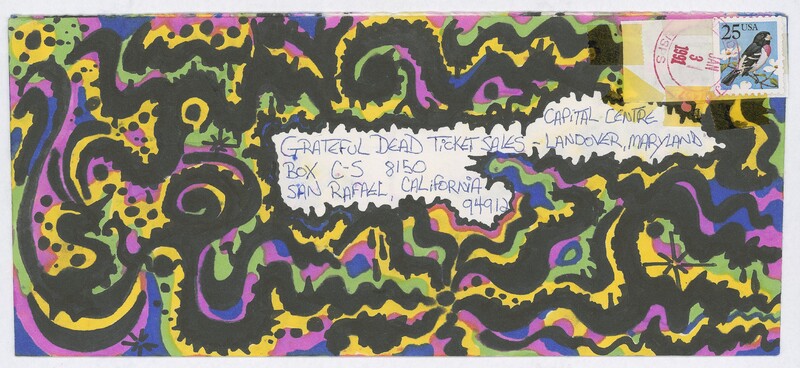 25 USA
JAN
3
1991
CAPITAL CENTRE
GRATEFUL DEAD TICKET SALES - LANDOVER, MARYLAND
BOX C-S 8150
SAN RAFAEL, CALIFORNIA
94912